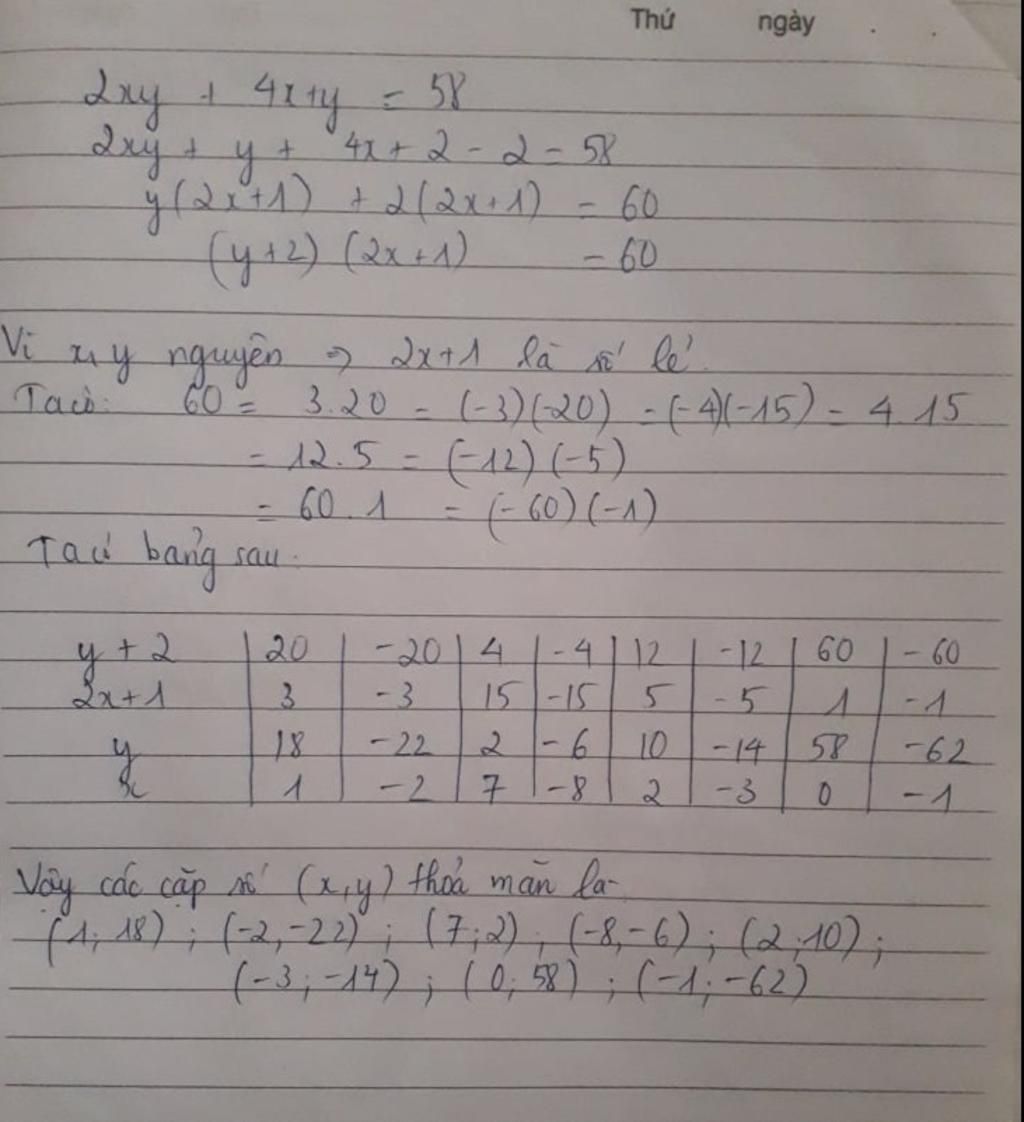 Thứ ngày . .
2xy + 4x+y = 58
2xy + y + 4x + 2 - 2 = 58
y(2x+1) + 2(2x+1) = 60
(y+2) (2x+1) = 60
Vì x, y nguyên => 2x+1 là số lẻ.
Ta có: 60 = 3.20 = (-3)(-20) = (-4)(-15) = 4.15
= 12.5 = (-12)(-5)
= 60.1 = (-60)(-1)
Ta có bảng sau.
y + 2 20 -20 4 -4 12 -12 60 -60
2x+1 3 -3 15 -15 5 -5 1 -1
y 18 -22 2 -6 10 -14 58 -62
x 1 -2 7 -8 2 -3 0 -1
Vậy các cặp số (x,y) thoả mãn là
(1; 18) ; (-2,-22) ; (7;2) , (-8,-6) ; (2;10) ;
(-3; -14) ; (0; 58) ; (-1; -62)